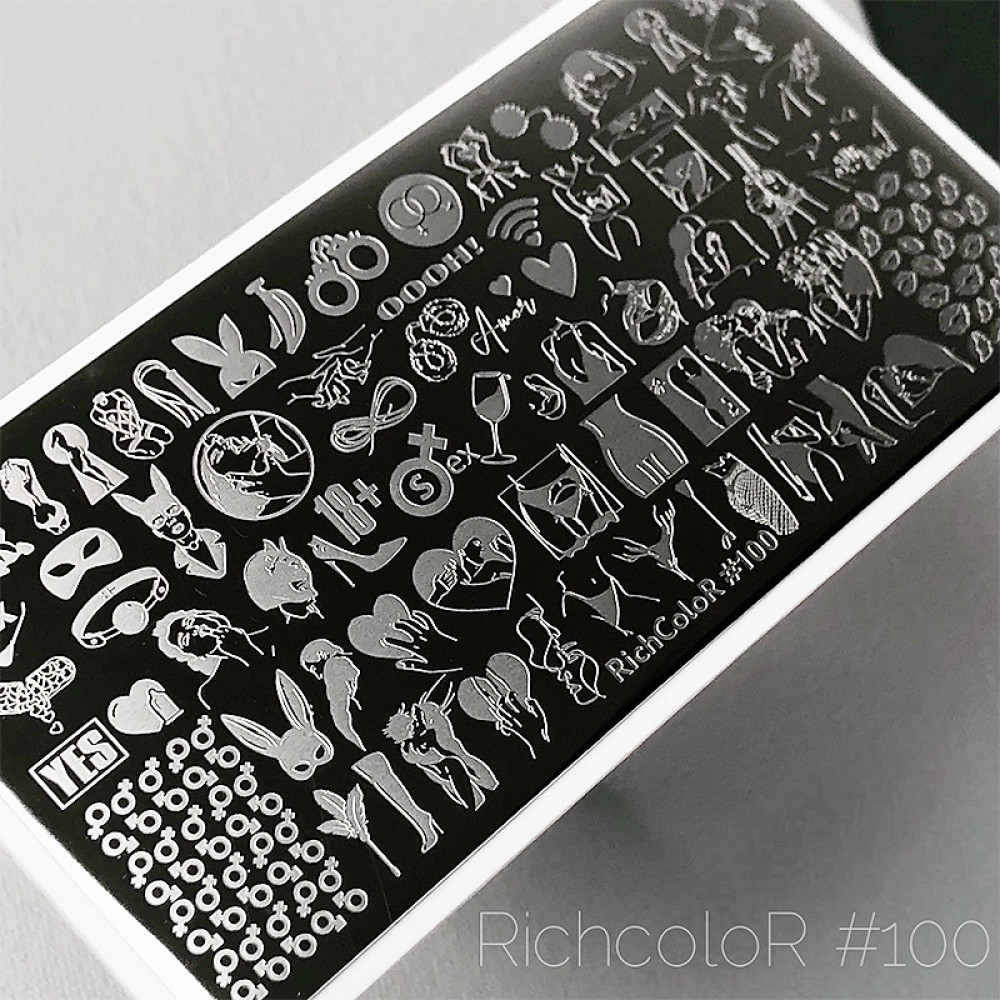 OOOH!
Amor
18+
Sex
YES
RichColoR #100
RichcoloR #100